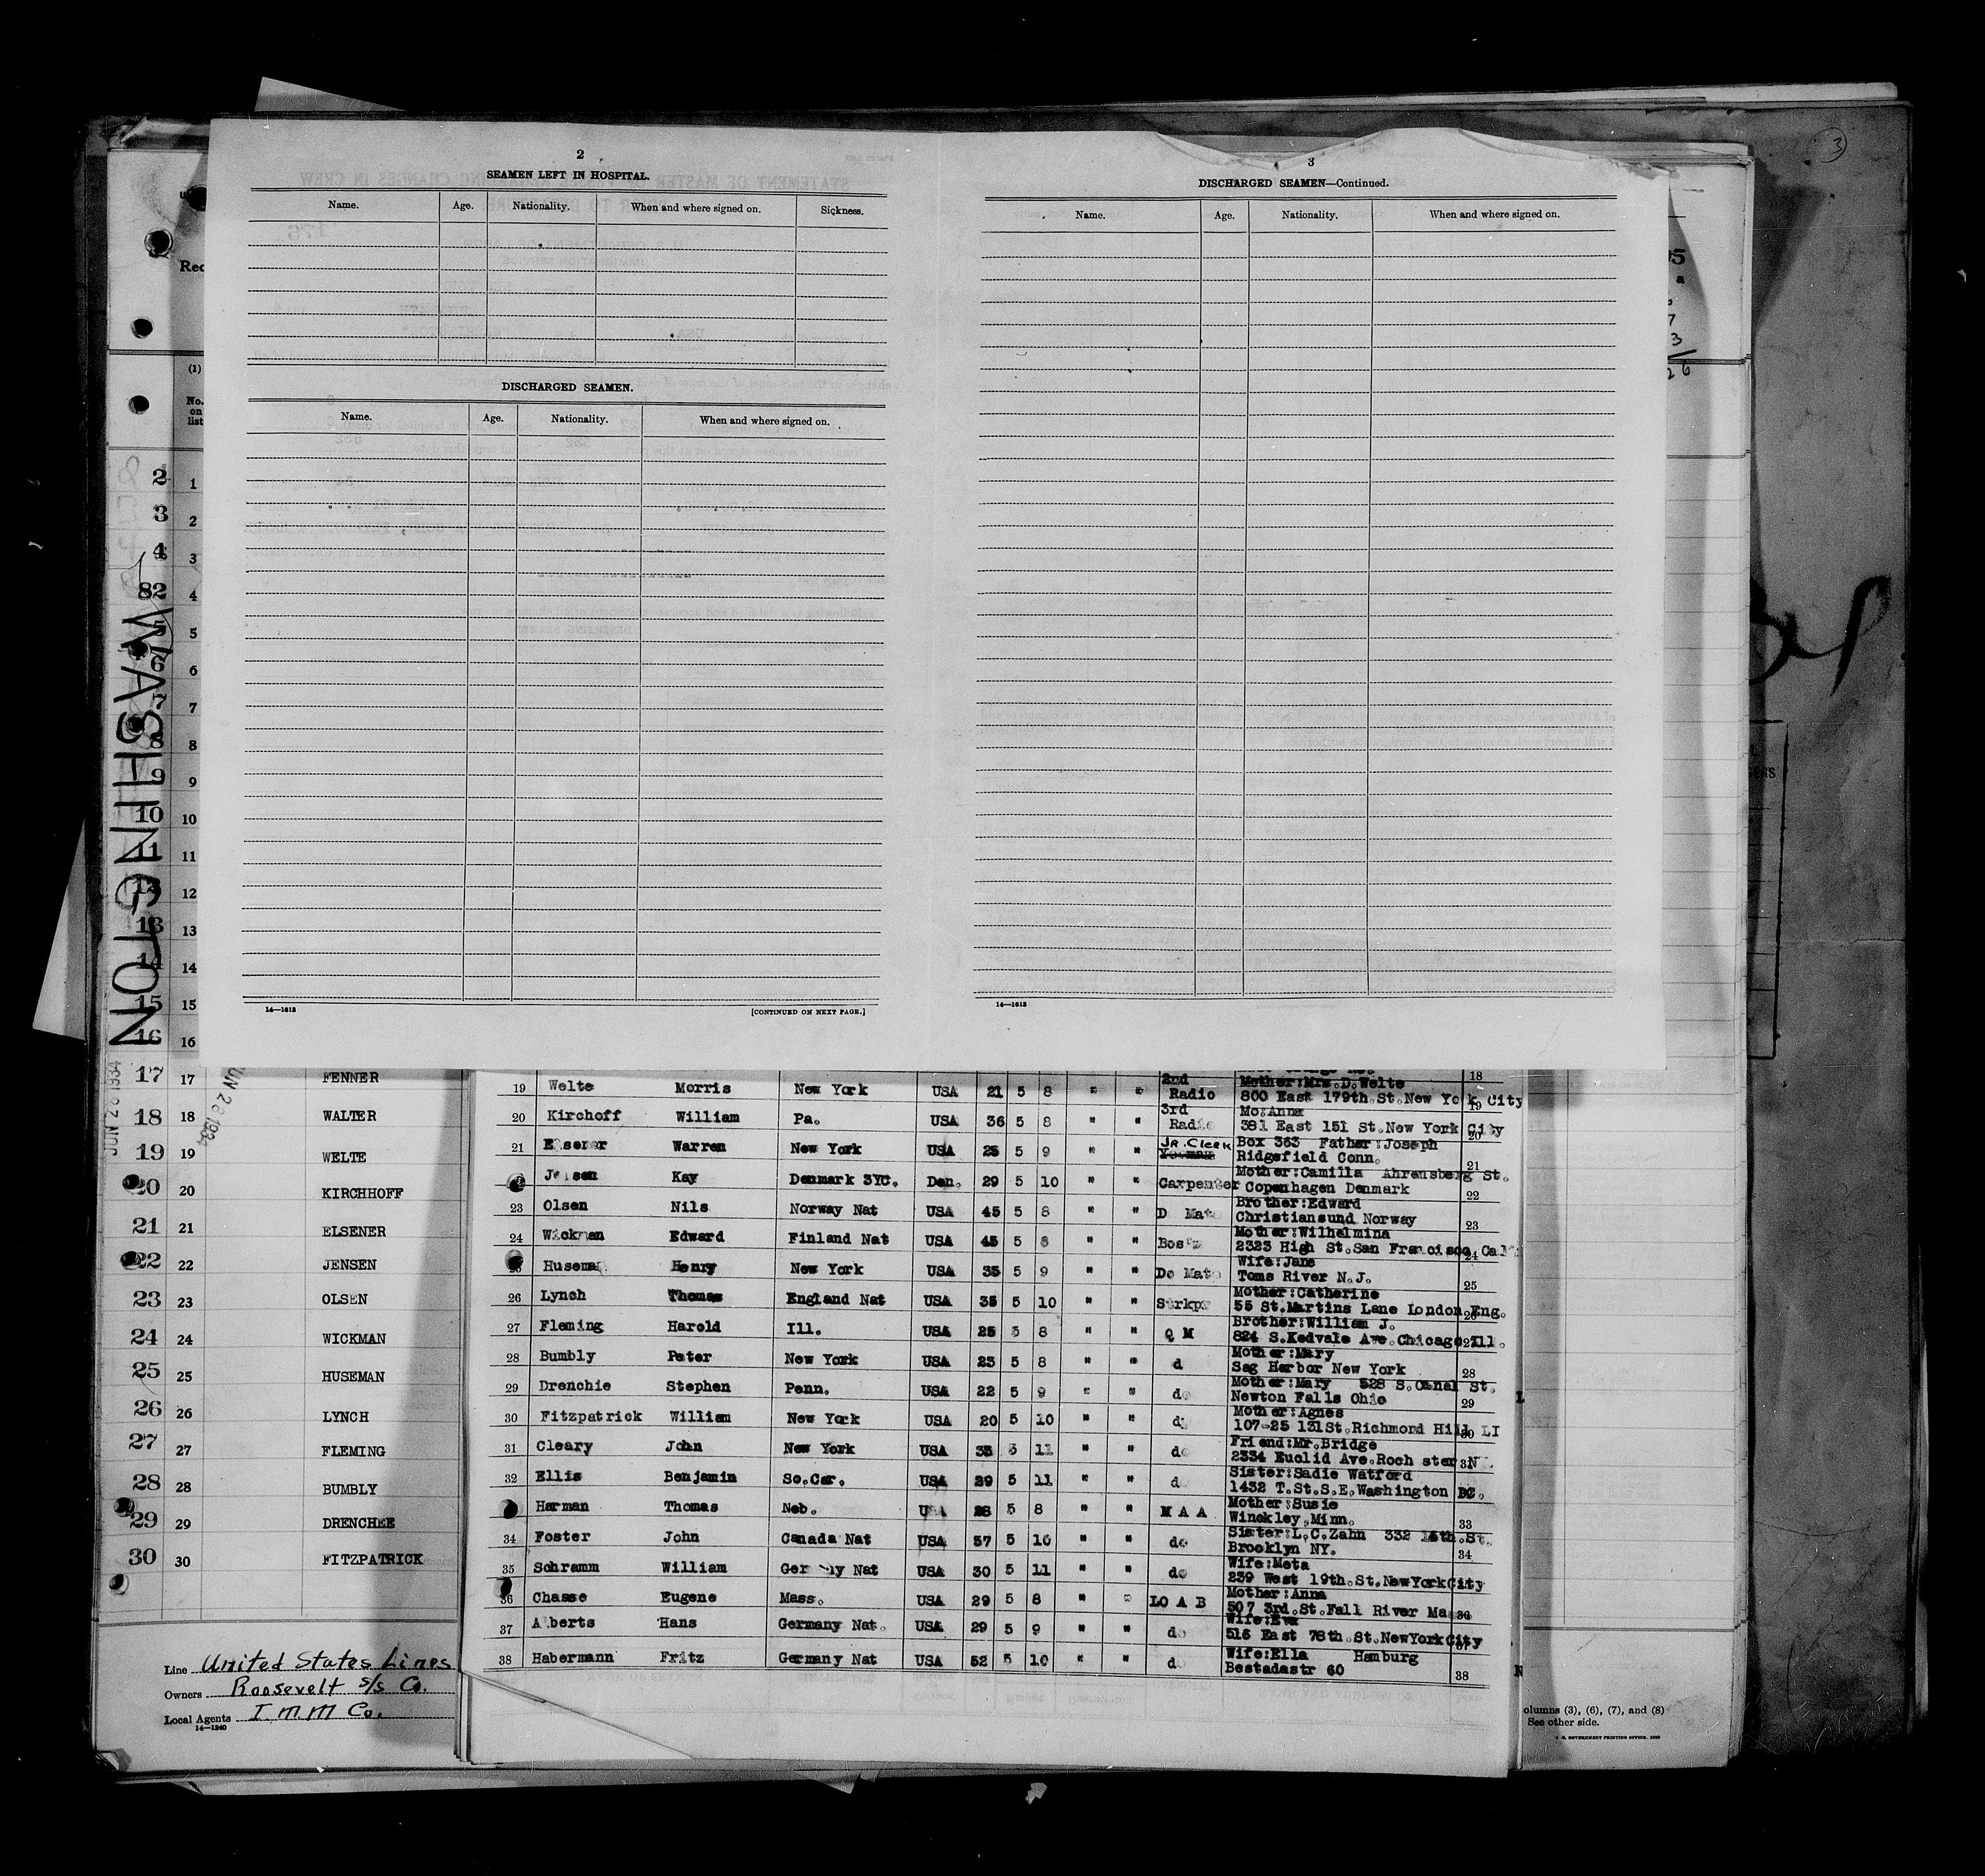 2
SEAMEN LEFT IN HOSPITAL.
Name. Age. Nationality. When and where signed on. Sickness.
DISCHARGED SEAMEN.
Name. Age. Nationality. When and where signed on.
14—1613
[CONTINUED ON NEXT PAGE.]
3
DISCHARGED SEAMEN—Continued.
Name. Age. Nationality. When and where signed on.
14—1613
3
(1)
No. on list
2 1
3 2
4 3
82 4
5
6
7 7
8 8
9 9
10 10
11 11
12 12
13 13
14 14
15 15
16 16
WASHINGTON
JUN 26 1934
17 17 FENNER
18 18 WALTER
19 19 WELTE
20 20 KIRCHHOFF
21 21 ELSENER
22 22 JENSEN
23 23 OLSEN
24 24 WICKMAN
25 25 HUSEMAN
26 26 LYNCH
27 27 FLEMING
28 28 BUMBLY
29 29 DRENCHEE
30 30 FITZPATRICK
Line United States Lines
Owners Roosevelt S/S Co.
Local Agents I.M.M Co.
14—1240
18
19 Welte Morris New York USA 21 5 8 " " 2nd Radio Mother:Mrs.D.Welte
800 East 179th.St.New York City 19
20 Kirchoff William Pa. USA 36 5 8 " " 3rd Radio Mo:Anna
381 East 151 St.New York City 20
21 Elsener Warren New York USA 25 5 9 " " Jr. Clerk Box 363 Father:Joseph
Ridgefield Conn. 21
Jensen Kay Denmark 3YC. Den. 29 5 10 " " Carpenter Mother:Camilla Ahrensberg St.
Copenhagen Denmark 22
23 Olsen Nils Norway Nat USA 45 5 8 " " D Mate Brother:Edward
Christiansund Norway 23
24 Wickman Edward Finland Nat USA 45 5 8 " " Bosn Mother:Wilhelmina
2323 High St.San Francisco Cal 24
25 Huseman Henry New York USA 35 5 9 " " De Mate Wife:Jane
Toms River N.J. 25
26 Lynch Thomas England Nat USA 35 5 10 " " Strkpr Mother:Catherine
55 St.Martins Lane London Eng. 26
27 Fleming Harold Ill. USA 25 5 8 " " Q M Brother:William J.
824 S.Kedvale Ave.Chicago Ill. 27
28 Bumbly Peter New York USA 23 5 8 " " d Mother:Mary
Sag Harbor New York 28
29 Drenchie Stephen Penn. USA 22 5 9 " " do Mother:Mary 528 S.Canal St.
Newton Falls Ohio 29
30 Fitzpatrick William New York USA 20 5 10 " " d Mother:Agnes
107-25 131St.Richmond Hill LI 30
31 Cleary John New York USA 35 5 11 " " do Friend:Mr.Bridge
2334 Euclid Ave.Roch ster N 31
32 Ellis Benjamin So.Car. USA 29 5 11 " " do Sister:Sadie Watford
1432 T.St.S.E.Washington DC.
Harman Thomas Neb. USA 28 5 8 " " M A A Mother:Susie
Winckley,Minn. 33
34 Foster John Canada Nat USA 57 5 10 " " do Sister:L.C.Zahn 332 14th.St.
Brooklyn NY. 34
35 Schramm William Germany Nat USA 30 5 11 " " do Wife:Meta
239 West 19th.St.NewYorkCity
36 Chasse Eugene Mass. USA 29 5 8 " " LO A B Mother:Anna
507 3rd.St.Fall River Mass 36
37 Alberts Hans Germany Nat. USA 29 5 9 " " do Wife:Eva
516 East 78th.St.NewYorkCity 37
38 Habermann Fritz Germany Nat USA 52 5 10 " " d Wife:Ella Hamburg
Bestadastr 60 38
olumns (3), (6), (7), and (8)
See other side.
GOVERNMENT PRINTING OFFICE